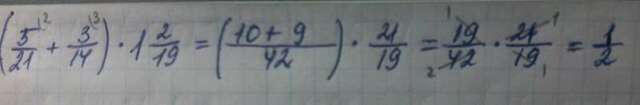 (5/21^2 + 3/14^3) · 1 2/19 = ((10 + 9)/42) · 21/19 = 19/42 · 21/19 = 1/2